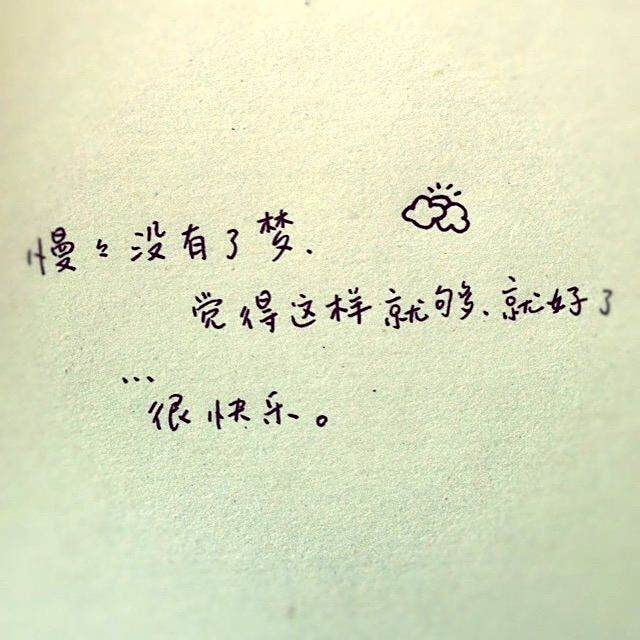 慢々没有了梦、
觉得这样就够、就好了
...很快乐。